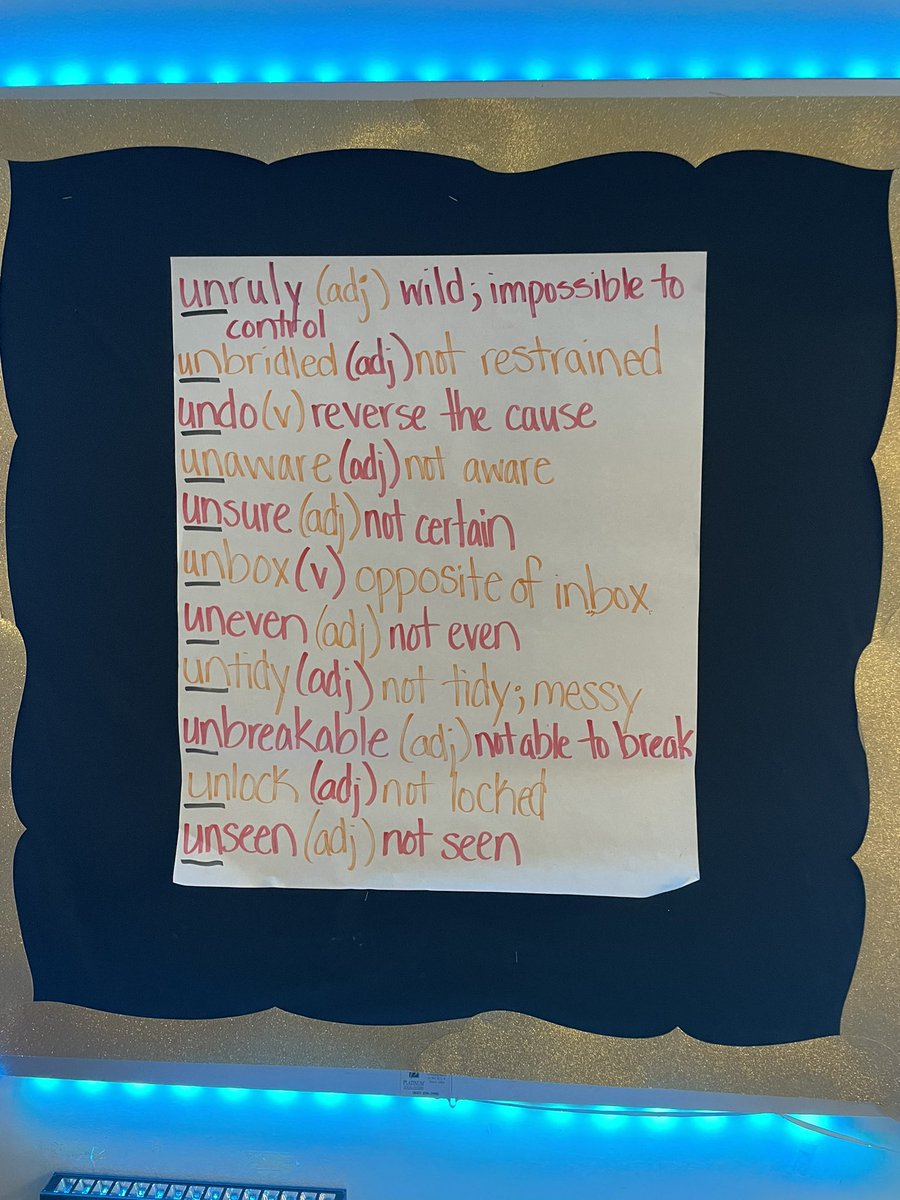 unruly (adj) wild; impossible to
control
unbridled (adj) not restrained
undo (v) reverse the cause
unaware (adj) not aware
unsure (adj) not certain
unbox (v) opposite of inbox
uneven (adj) not even
untidy (adj) not tidy; messy
unbreakable (adj) not able to break
unlock (adj) not locked
unseen (adj) not seen
PLATINUM